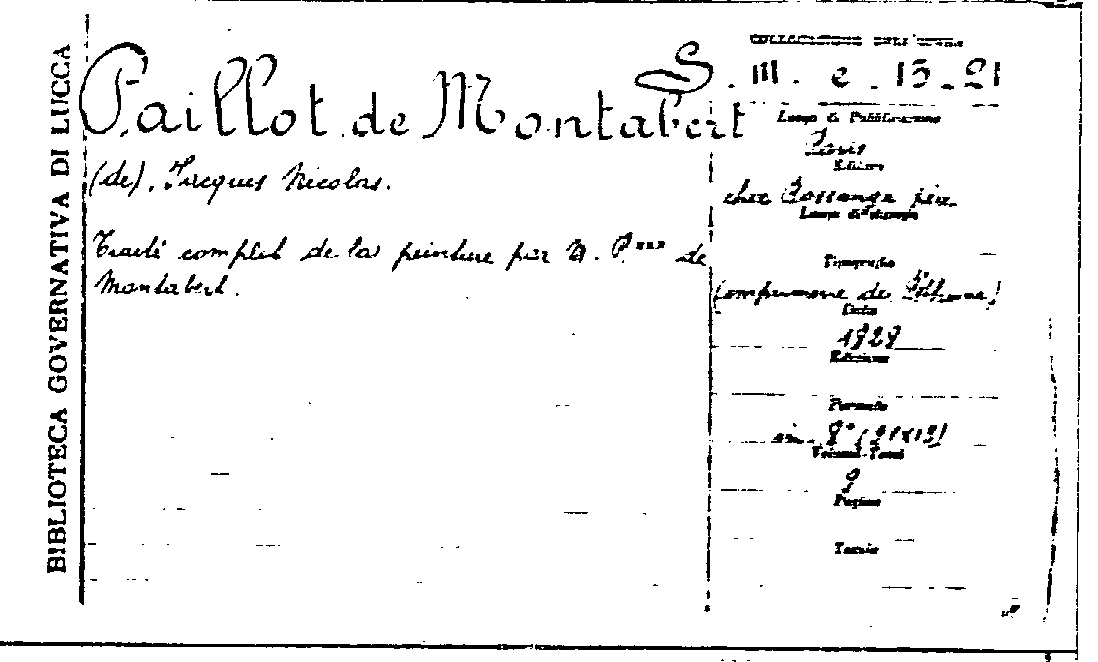 BIBLIOTECA GOVERNATIVA DI LUCCA
Paillot de Montabert
(de), Jacques Nicolas.
Traité complet de la peinture par M. P*** de
Montabert.
COLLOCAZIONE DELL'OPERA
S. III. e. 15-21
Luogo di Pubblicazione
Paris
Editore
chez Bossange père
Luogo di stampa
Tipografo
(imprimerie de
Data
1829
Edizione
Formato
in-8° (21x13)
Volumi-Tomi
9
Pagine
Tavole